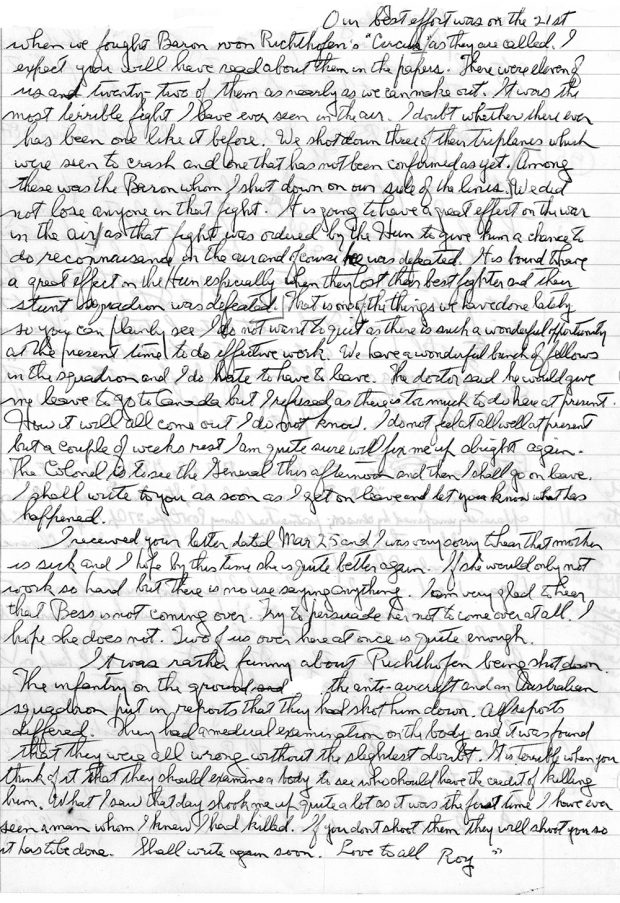 Our best effort was on the 21st
when we fought Baron von Richthofen's "Circus" as they are called. I
expect you will have read about them in the papers. There were eleven of
us and twenty-two of them as nearly as we can make out. It was the
most terrible fight I have ever seen in the air. I doubt whether there ever
has been one like it before. We shot down three of their triplanes which
were seen to crash and one that has not been confirmed as yet. Among
these was the Baron whom I shot down on our side of the lines. We did
not lose anyone in that fight. It is going to have a great effect on the war
in the air as that fight was ordered by the Hun to give him a chance to
do reconnaisance in the air and of course he was defeated. It is bound to have
a great effect on the Hun especially when they lost their best fighter and their
stunt squadron was defeated. That is one of the things we have done lately
so you can plainly see I do not want to quit as there is such a wonderful opportunity
at the present time to do effective work. We have a wonderful bunch of fellows
in the squadron and I do hate to have to leave. The doctor said he would give
me leave to go to Canada but I refused as there is too much to do here at present.
How it will all come out I do not know. I do not feel at all well at present
but a couple of weeks rest I am quite sure will fix me up alright again.
The Colonel is to see the General this afternoon and then I shall go on leave.
I shall write to you as soon as I get on leave and let you know what has
happened.
I received your letter dated Mar 25 and I was very sorry to hear that mother
is sick and I hope by this time she is quite better again. If she would only not
work so hard but there is no use saying anything. I am very glad to hear
that Bess is not coming over. Try to persuade her not to come over at all. I
hope she does not. Two of us over here at once is quite enough.
It was rather funny about Richthofen being shot down.
The infantry on the ground and the anti-aircraft and an Australian
squadron put in reports that they had shot him down. All reports
differed. They had a medical examination on the body and it was found
that they were all wrong without the slightest doubt. It is terrible when you
think of it that they should examine a body to see who should have the credit of killing
him. What I saw that day shook me up quite a lot as it was the first time I have ever
seen a man whom I knew I had killed. If you dont shoot them they will shoot you so
it has to be done. Shall write again soon. Love to all Roy"